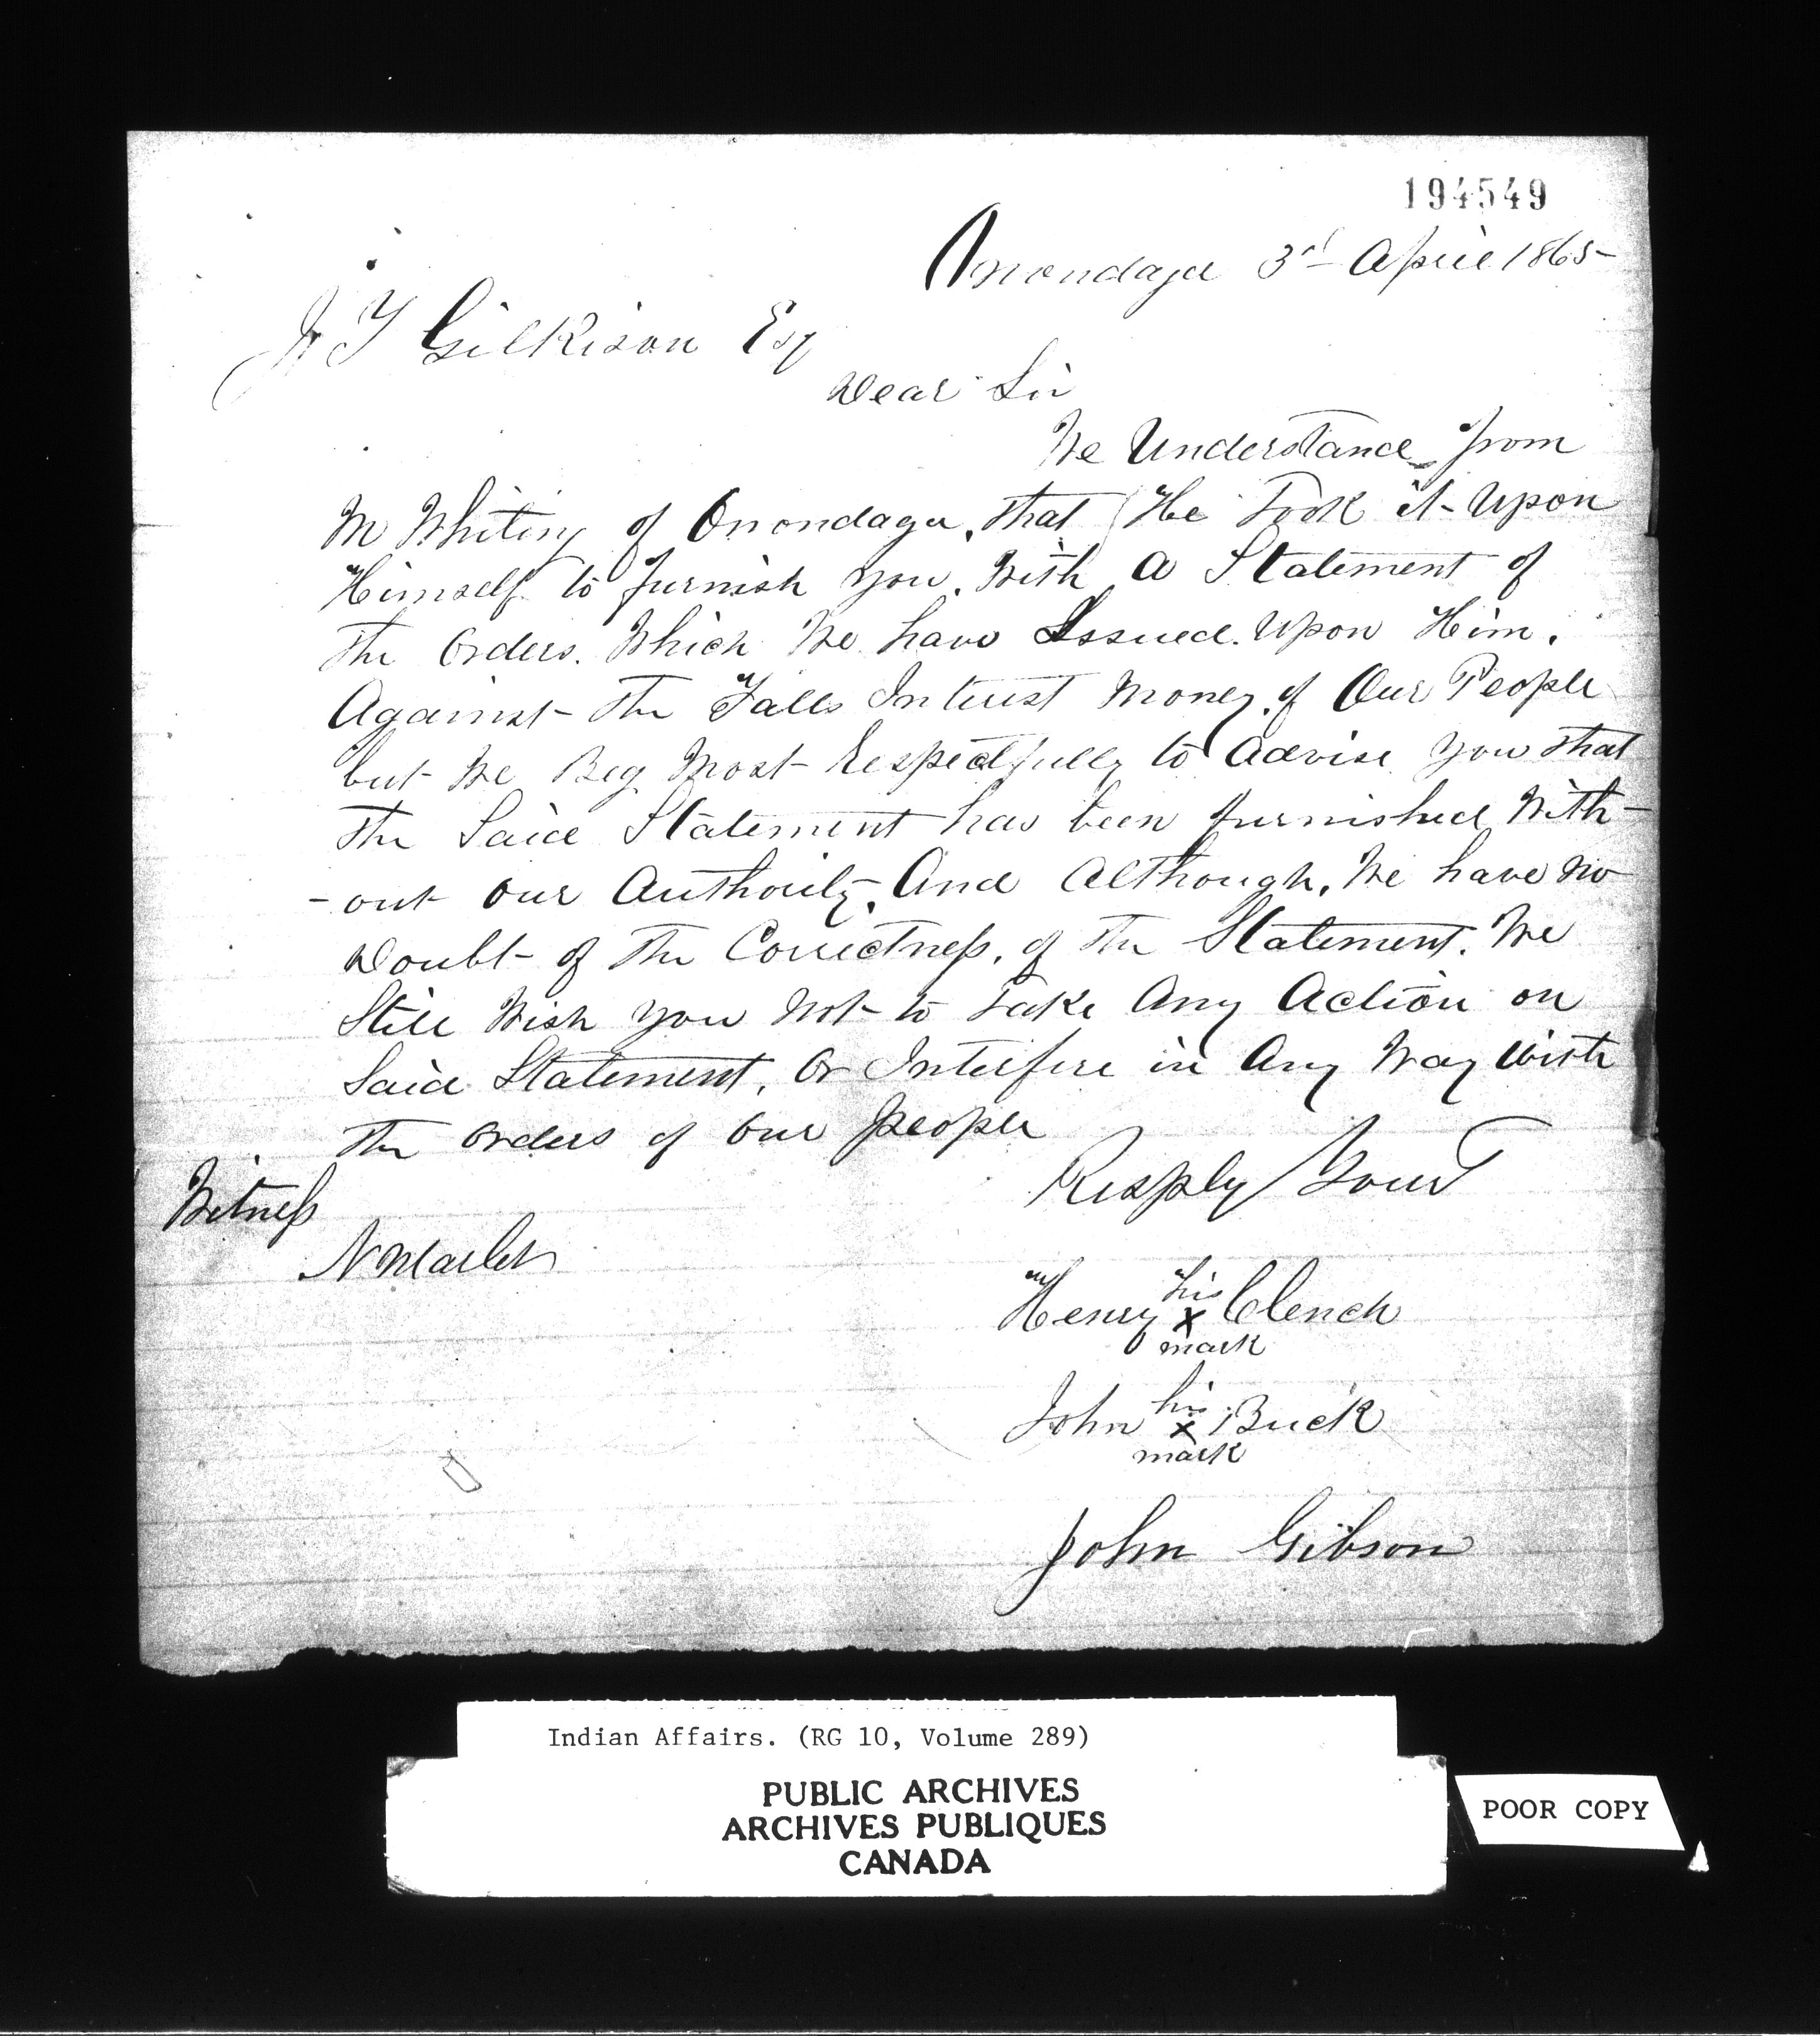 194549
Onondaga 3d April 1865
J T Gilkison Esq
Dear Sir
We Understand from
Mr Whiting of Onondaga, that He Took it Upon
Himself to furnish you, With a Statement of
The Orders. Which We have Issued Upon Him,
Against The Falls Interest Money, of Our People
but We Beg Most Respectfully to Advise you that
The Said Statement has been furnished With-
-out Our Authority, And Although, We have no
Doubt of The Correctness, of The Statement, We
Still Wish you Not to Take Any Action on
Said Statement, Or Interfere in Any Way With
The Orders of Our people
Resply Yours
Witness
Henry his x mark Clench
John his x mark Buck
John Gibson
Indian Affairs. (RG 10, Volume 289)
PUBLIC ARCHIVES
ARCHIVES PUBLIQUES
CANADA
POOR COPY